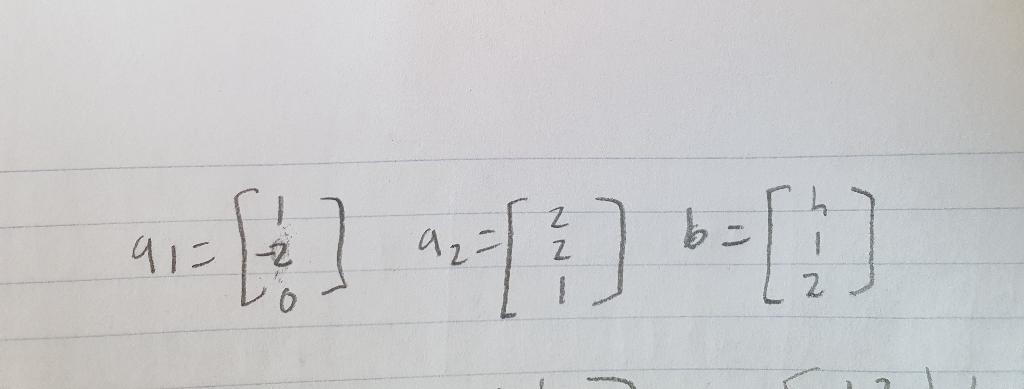 a1 = [1 -2 0] a2 = [2 2 1] b = [h 1 2]